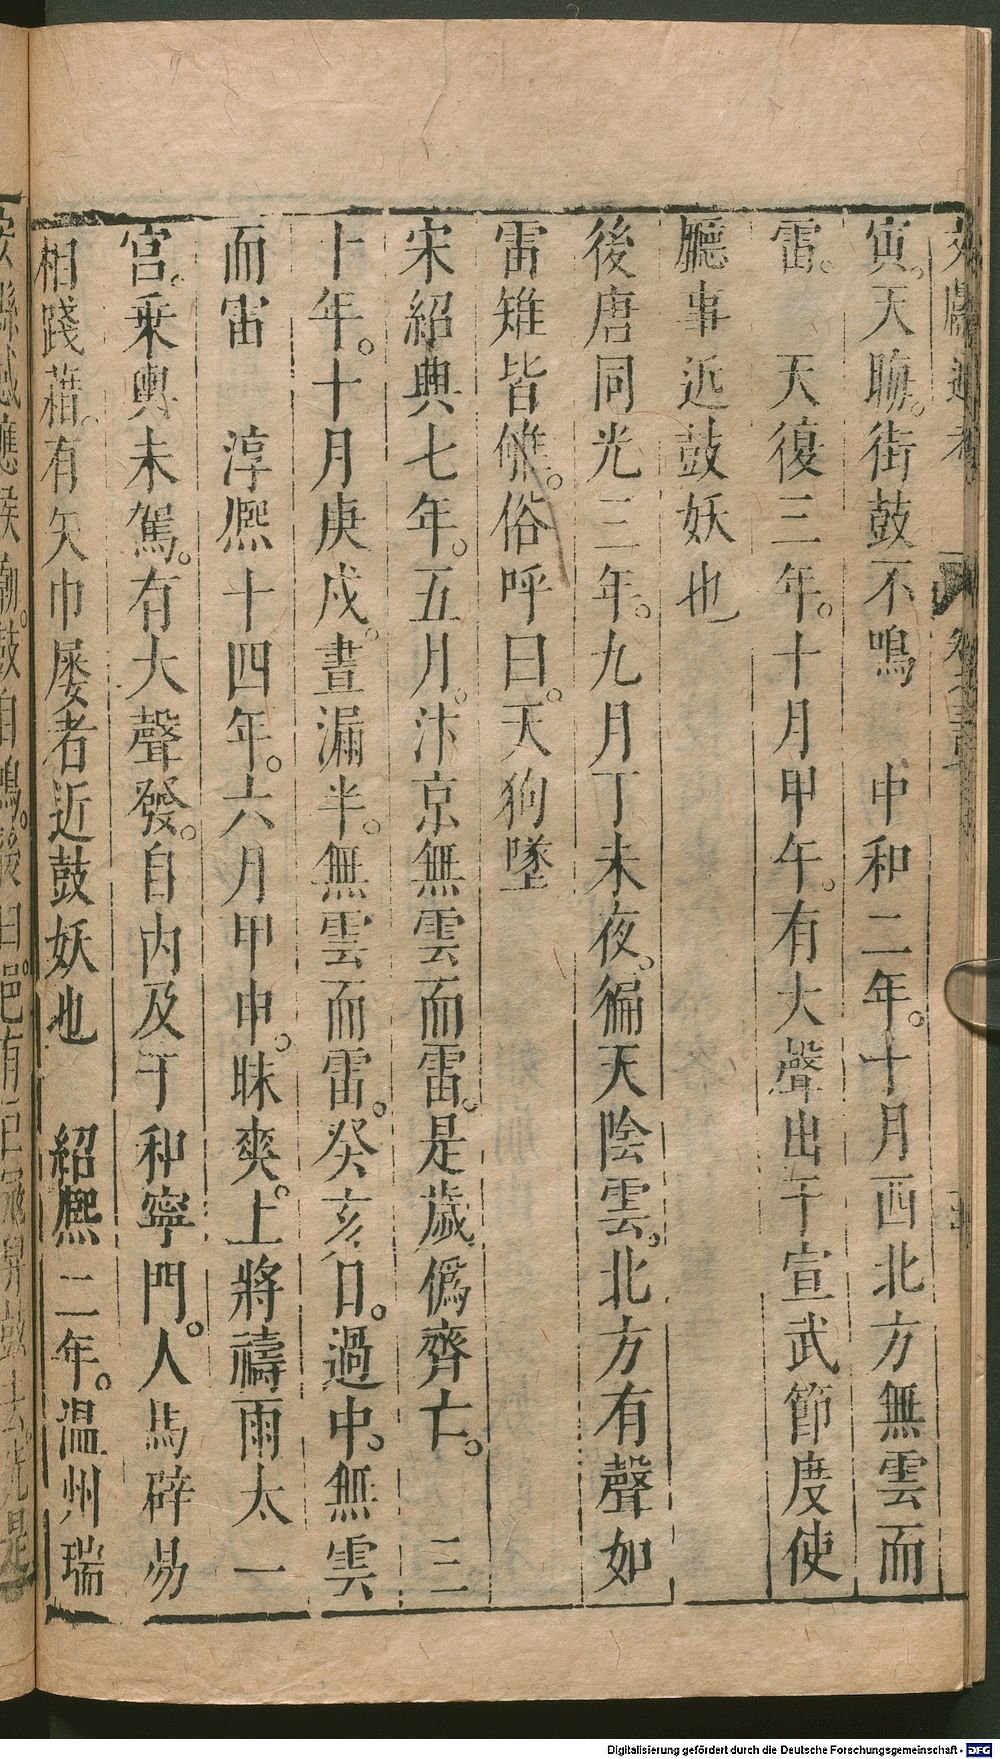 寅。天晦。街鼓不鳴　中和二年。十月西北方無雲而
雷。　天復三年。十月甲午。有大聲出于宣武節度使
廳事近鼓妖也
後唐同光三年。九月丁未夜。徧天陰雲。北方有聲如
雷雉皆雊。俗呼曰。天狗墜
宋紹興七年。五月。汴京無雲而雷。是歲僞齊亡。　三
十年。十月庚戍。晝漏半。無雲而雷。癸亥日。過中。無雲
而雷　淳熙十四年。六月甲申。昧爽。上將禱雨太一
宮。乘輿未駕。有大聲發。自內及于和寧門。人馬辟易
相踐藉。有失巾屨者近鼓妖也　紹熙二年。温州瑞
Digitalisierung gefördert durch die Deutsche Forschungsgemeinschaft - DFG